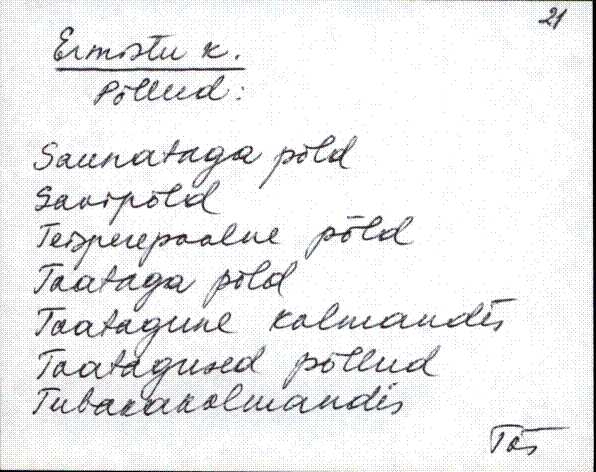 21
Ermistu k.
Põllud:
Saunataga põld
Savipõld
Teisperepoolne põld
Toataga põld
Toatagune kolmandis
Toatagused põllud
Tubakakolmandis
Tõs